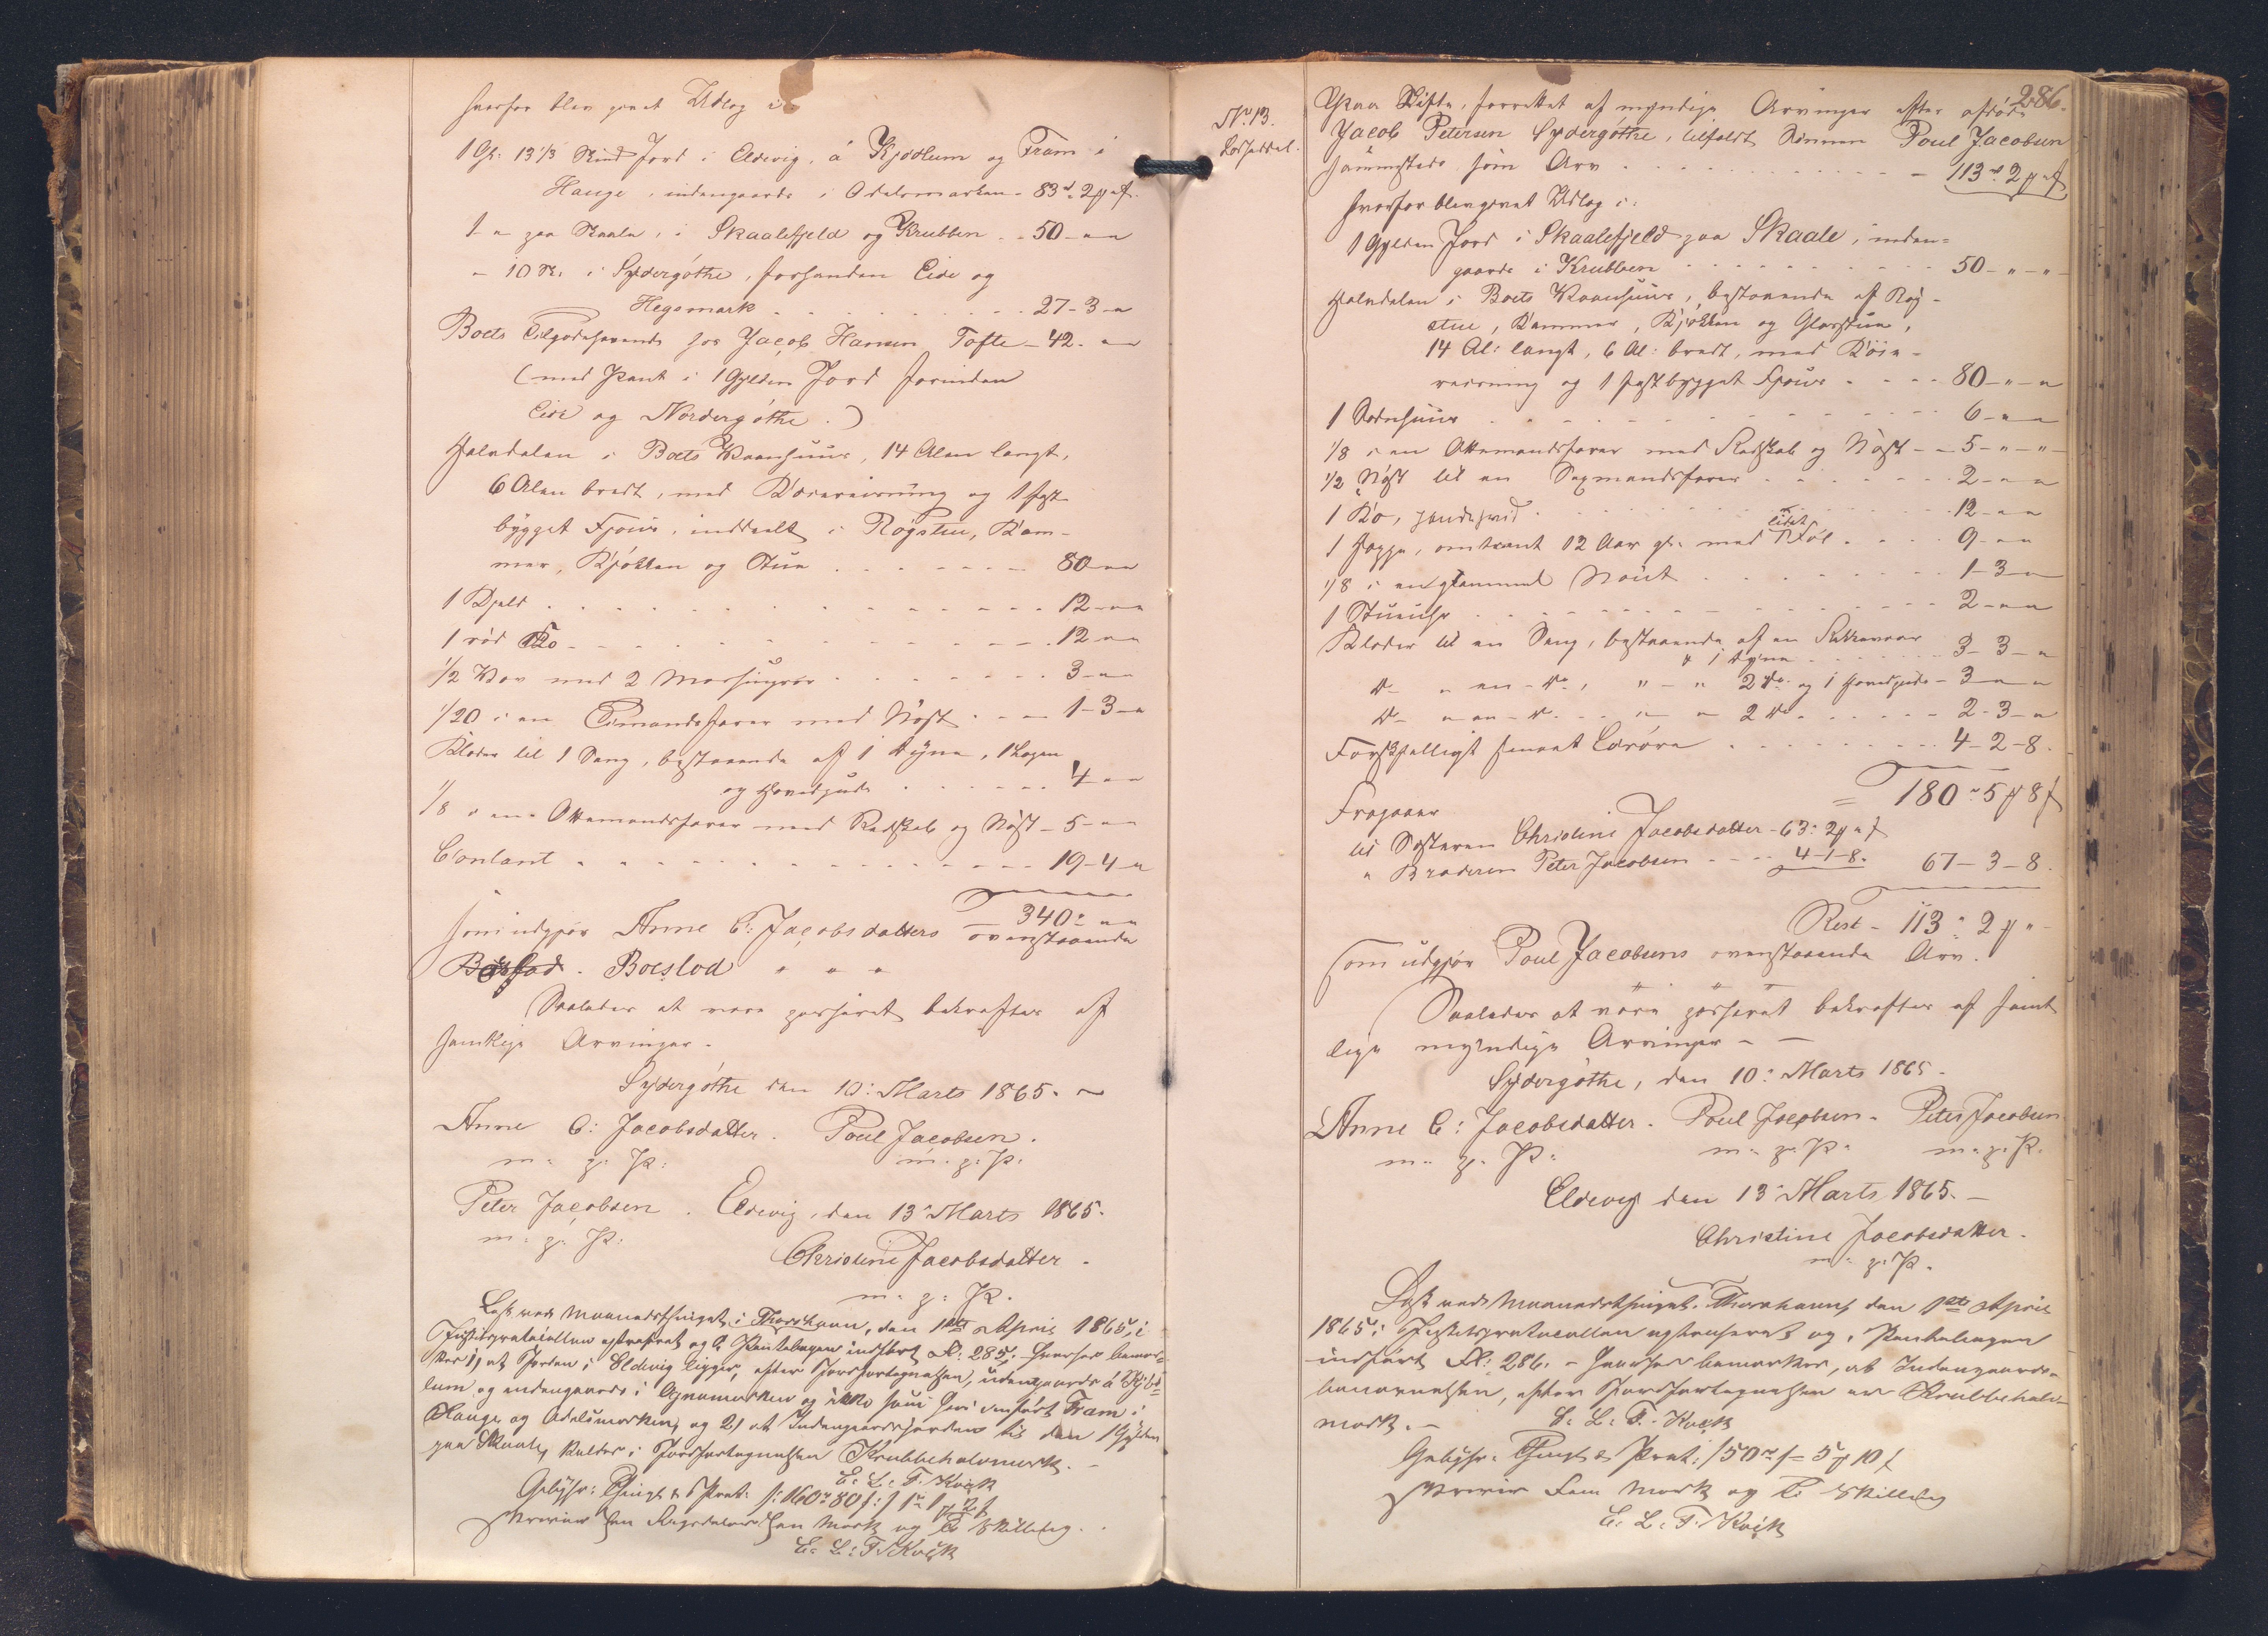 hvorfor blev givet Udlog i
1 Gl: 13 1/3 Skind Jord i Eldevig, á Kjødlum og Fram i
Hauge, indengaards i Odelsmarken - 83 rd 2 # " ß
1 - " paa Skaale, i Skaalefjeld og Krubben - 50 - " "
- 10 Sk: i Sydergøthe, forhenden Eide og
Hegomark . . . 27 - 3 - "
Boets Tilgodehavende hos Jacob Hansen Tofte - 42 - " "
(med Pant i 1 Gylden Jord forinden
Eide og Nordergøthe.)
Halvdelen i Boets Vaanhuus, 14 Alen langt,
6 Alen bredt, med og 1 fast
bygget Fjøus, inddeelt i Røgstue, Kam-
mer, Kjøkken og Stue . . . 80 - " "
1 Kjeld . . . 12 - " "
1 rød Ko . . . 12 - " "
1/2 Vov med 2 . . . 3 - " "
1/20 i en Timandsfarer med Nøst . . . 1 - 3 - "
Klæder til 1 Seng, bestaaende af 1 Dyne, 1 Lagen
og Hovedpude . . . 4 " "
1/8 i en Ottemandsfarer med Redskab og Nøst - 5 - " "
Contant . . . 19 - 4 - "
= 340 rd " "
som udgjør Anne C: Jacobsdatters ovenstaaende
Boeslod " " "
Saaledes at være passeret bekræftes af
samtlige Arvinger -
Sydergøthe den 10: Marts 1865. -
Anne C: Jacobsdatter. Poul Jacobsen.
m: p: P: m: p: P:
Peter Jacobsen. Eldevig, den 13: Marts 1865.
m: p: P:
Christine Jacobsdatter.
m: p: P.
Læst ved Maanedsthinget i Thorshavn, den 1ste April 1865, i
Justitsprotocollen extraheret og i Pantebogen indført Fl: 285. Hvorhos bemær-
kes 1, at Jorden i Eldevig ligger, efter Jordfortegnelsen, udengaards á Kjød-
lum og indengaards i og ikke som heri anført Fram i
Hauge og Odelsmarken, og 2) at Indengaardsjorden til den 1 Gylden
paa Skaale, kaldes i Jordfortegnelsen Krubbehalvmark. -
E. L: T. Kvik
Gebyhr: Thingl & Prot: /: 160 rd 80 ß :/ 1 rd 1 # 2 ß
skriver Een Rigsdaler Een Mark og To Skilling.
E. L: T. Kvik
286.
No. 13.
Lodseddel.
Paa Skifte, forrettet af myndige Arvinger efter afdøde
Jacob Petersen Sydergøthe, tilfaldt Sønnen Poul Jacobsen
sammesteds som Arv . . . 113 rd 2 # " ß
hvorfor blev givet Udlog i:
1 Gylden Jord i Skaalefjeld paa Skaale, inden-
gaards i Krubben . . . 50 - " - "
Halvdelen i Boets Vaanhuus, bestaaende af Røg-
stue, Kammer, Kjøkken og Glarstue,
14 Al: langt, 6 Al: bredt, med
og 1 fast bygget Fjøus . . . 80 - " - "
1 Sodnhuus . . . 6 - " "
1/8 i en Ottemandsfarer med Redskab og Nøst - - 5 - " - "
1/2 Nøst til en Sexmandsfarer . . . 2 - " "
1 Ko, . . . 12 - " "
1 Hoppe, omtrent 12 Aar gl. med lidet Føl . . . 9 - " "
1/8 i en gammel Nout . . . 1 - 3 - "
1 Stueuhr . . . 2 - " "
Klæder til en Seng, bestaaende af en
" 1 Dyne . . . 3 - 3 - "
do - " en - do, " - " 2 do og 1 Hovedpude - 3 - " "
do - " en - do - - " - " 2 do . . . 2 - 3 - "
Forskjelligt smaat Løsøre . . . 4 - 2 - 8.
= 180 rd 5 # 8 ß
Fragaaer
til Søsteren Christine Jacobsdatter - 63: 2 # " ß
" Broderen Peter Jacobsen - - - 4 - 1 - 8. 67 - 3 - 8.
Rest - 113: 2 # "
som udgjør Poul Jacobsens ovenstaaende Arv.
Saaledes at være passeret bekræftes af samt
lige myndige Arvinger - -
Sydergøthe, den 10: Marts 1865.
Anne C: Jacobsdatter. Poul Jacobsen. Peter Jacobsen
m: p: P: m: p: P: m: p: P.
Eldevig den 13: Marts 1865. -
Christine Jacobsdatter.
m: p: P.
Læst ved Maanedsthinget i Thorshavn, den 1ste April
1865, i Justitsprotocollen extraheret og i Pantebogen
indført Fl: 286. - Hvorhos bemærkes, at Indengaards-
benævnelsen, efter Jordfortegnelsen er Krubbehalv-
mark. -
E. L: T. Kvik
Gebyhr: Thingl & Prot: / 50 rd / = 5 # 10 ß
skriver Fem Mark og Ti Skilling
E. L: T. Kvik